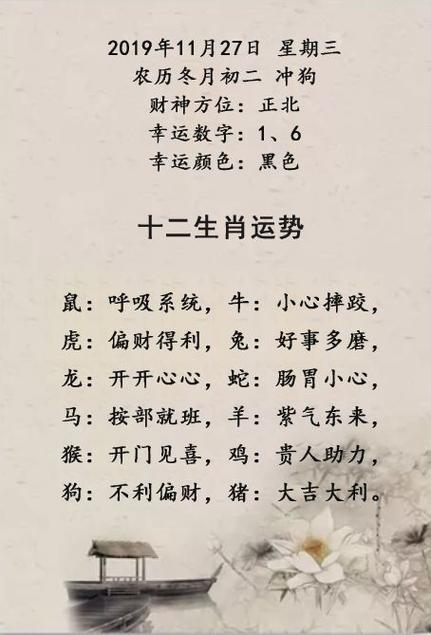 2019年11月27日 星期三
农历冬月初二 冲狗
财神方位：正北
幸运数字：1、6
幸运颜色：黑色
十二生肖运势
鼠：呼吸系统，牛：小心摔跤，
虎：偏财得利，兔：好事多磨，
龙：开开心心，蛇：肠胃小心，
马：按部就班，羊：紫气东来，
猴：开门见喜，鸡：贵人助力，
狗：不利偏财，猪：大吉大利。